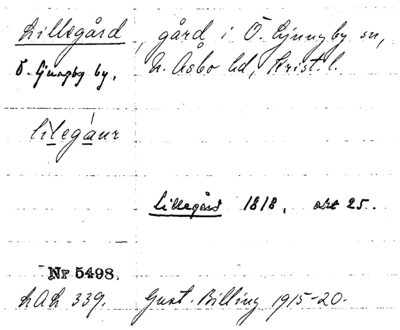 Lillegård, gård i Ö. Ljungby sn,
Ö. Ljungby by. N. Åsbo hd, Krist. l.
lilegáur
Lillegård 1818. akt 25.
Nr 5498.
LAL 339. Gust. Billing 1915-20.